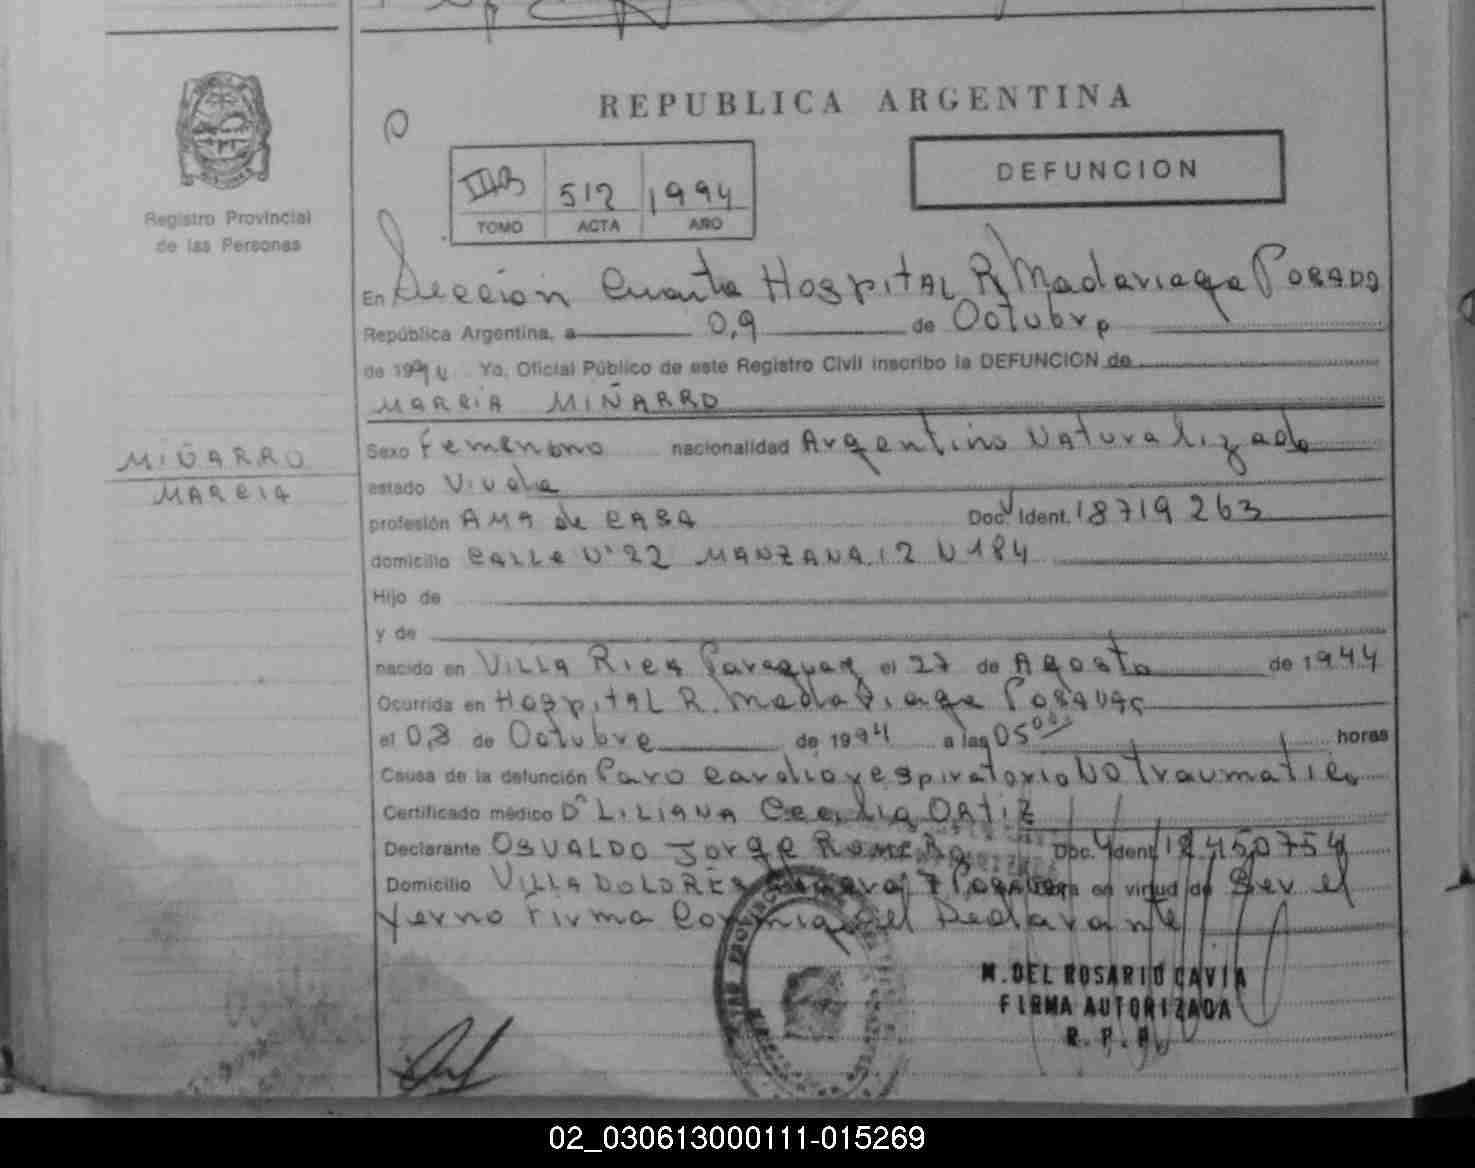 REPUBLICA ARGENTINA
DEFUNCION
512 1994
TOMO ACTA AÑO
Registro Provincial
de las Personas
En Sección Cuarta Hospital R Madariaga Posadas
República Argentina, a 0,9 de Octubre
de 1994 Yo, Oficial Público de este Registro Civil inscribo la DEFUNCION de
MIÑARRO
MIÑARRO
MARCIA
Sexo Femenono nacionalidad Argentino Naturalizado
estado Viuda
profesión AMA de CASA Doc. Ident. 18719263
domicilio CALLE Nº 22 MANZANA 12 N 184
Hijo de
y de
nacido en VILLA Rica Paraguay el 27 de Agosto de 1944
Ocurrida en Hospital R. Madariaga Posadas
el 0,8 de Octubre de 1994 a las 05 horas
Causa de la defunción Paro cardiorespiratorio No traumatico
Certificado médico Dra LILIANA Cecilia ORTIZ
Declarante OSVALDO Jorge ROMERO Doc. Ident.
Domicilio VILLA DOLORES en virtud de Ser el
yerno Firma del Declarante
M. DEL ROSARIO CAVIA
FIRMA AUTORIZADA
R. P. P.
02_030613000111-015269